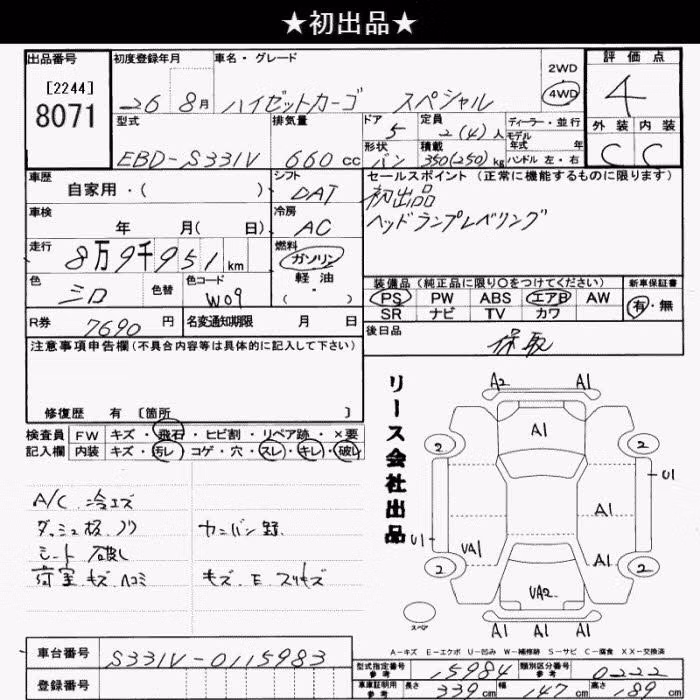 ★初出品★
出品番号 初度登録年月 車名・グレード 2WD 評価点
[2244] 8071 26 8月 ハイゼットカーゴ スペシャル 4WD 4
型式 排気量 ドア 定員 ディーラー・並行 外装 内装
EBD-S331V 660cc 5 2(4)人 モデル年式 年 C C
形状 バン 積載 350(250)kg ハンドル 左・右
車歴 シフト セールスポイント(正常に機能するものに限ります)
自家用・( ) DAT 初出品
車検 冷房 ヘッドランプレベリング
年 月( 日) AC
走行 燃料
8万9千951km ガソリン
軽油
・( )
色 色替 色コード 装備品(純正品に限り○をつけてください) 新車保証書
シロ W09 PS PW ABS エアB AW 有・無
SR ナビ TV カワ
R券 7690円 名変通知期限 月 日 後日品
保取
注意事項申告欄(不具合内容等は具体的に記入して下さい)
修復歴 有 [箇所 ]
検査員 FW キズ・飛石・ヒビ割・リペア跡・×要
記入欄 内装 キズ・汚レ・コゲ・穴・スレ・キレ・破レ
A/C 冷エズ
ダッシュ板 ノリ
シート 破レ
荷室 キズ ヘコミ
キズ・E・スリキズ
リース会社出品
A2 A1
A1
2 2
U1
A1
U1
UA1 A1
2 2
UA2
スペア
A1 A1 A1
A-キズ E-エクボ U-凹み W-補修跡 S-サビ C-腐食 XX-交換済
車台番号 S331V-0115983
登録番号
型式指定番号 参考 15984 類別区分番号 参考 0222
車庫証明用 参考 長さ 339cm 幅 147cm 高さ 189cm